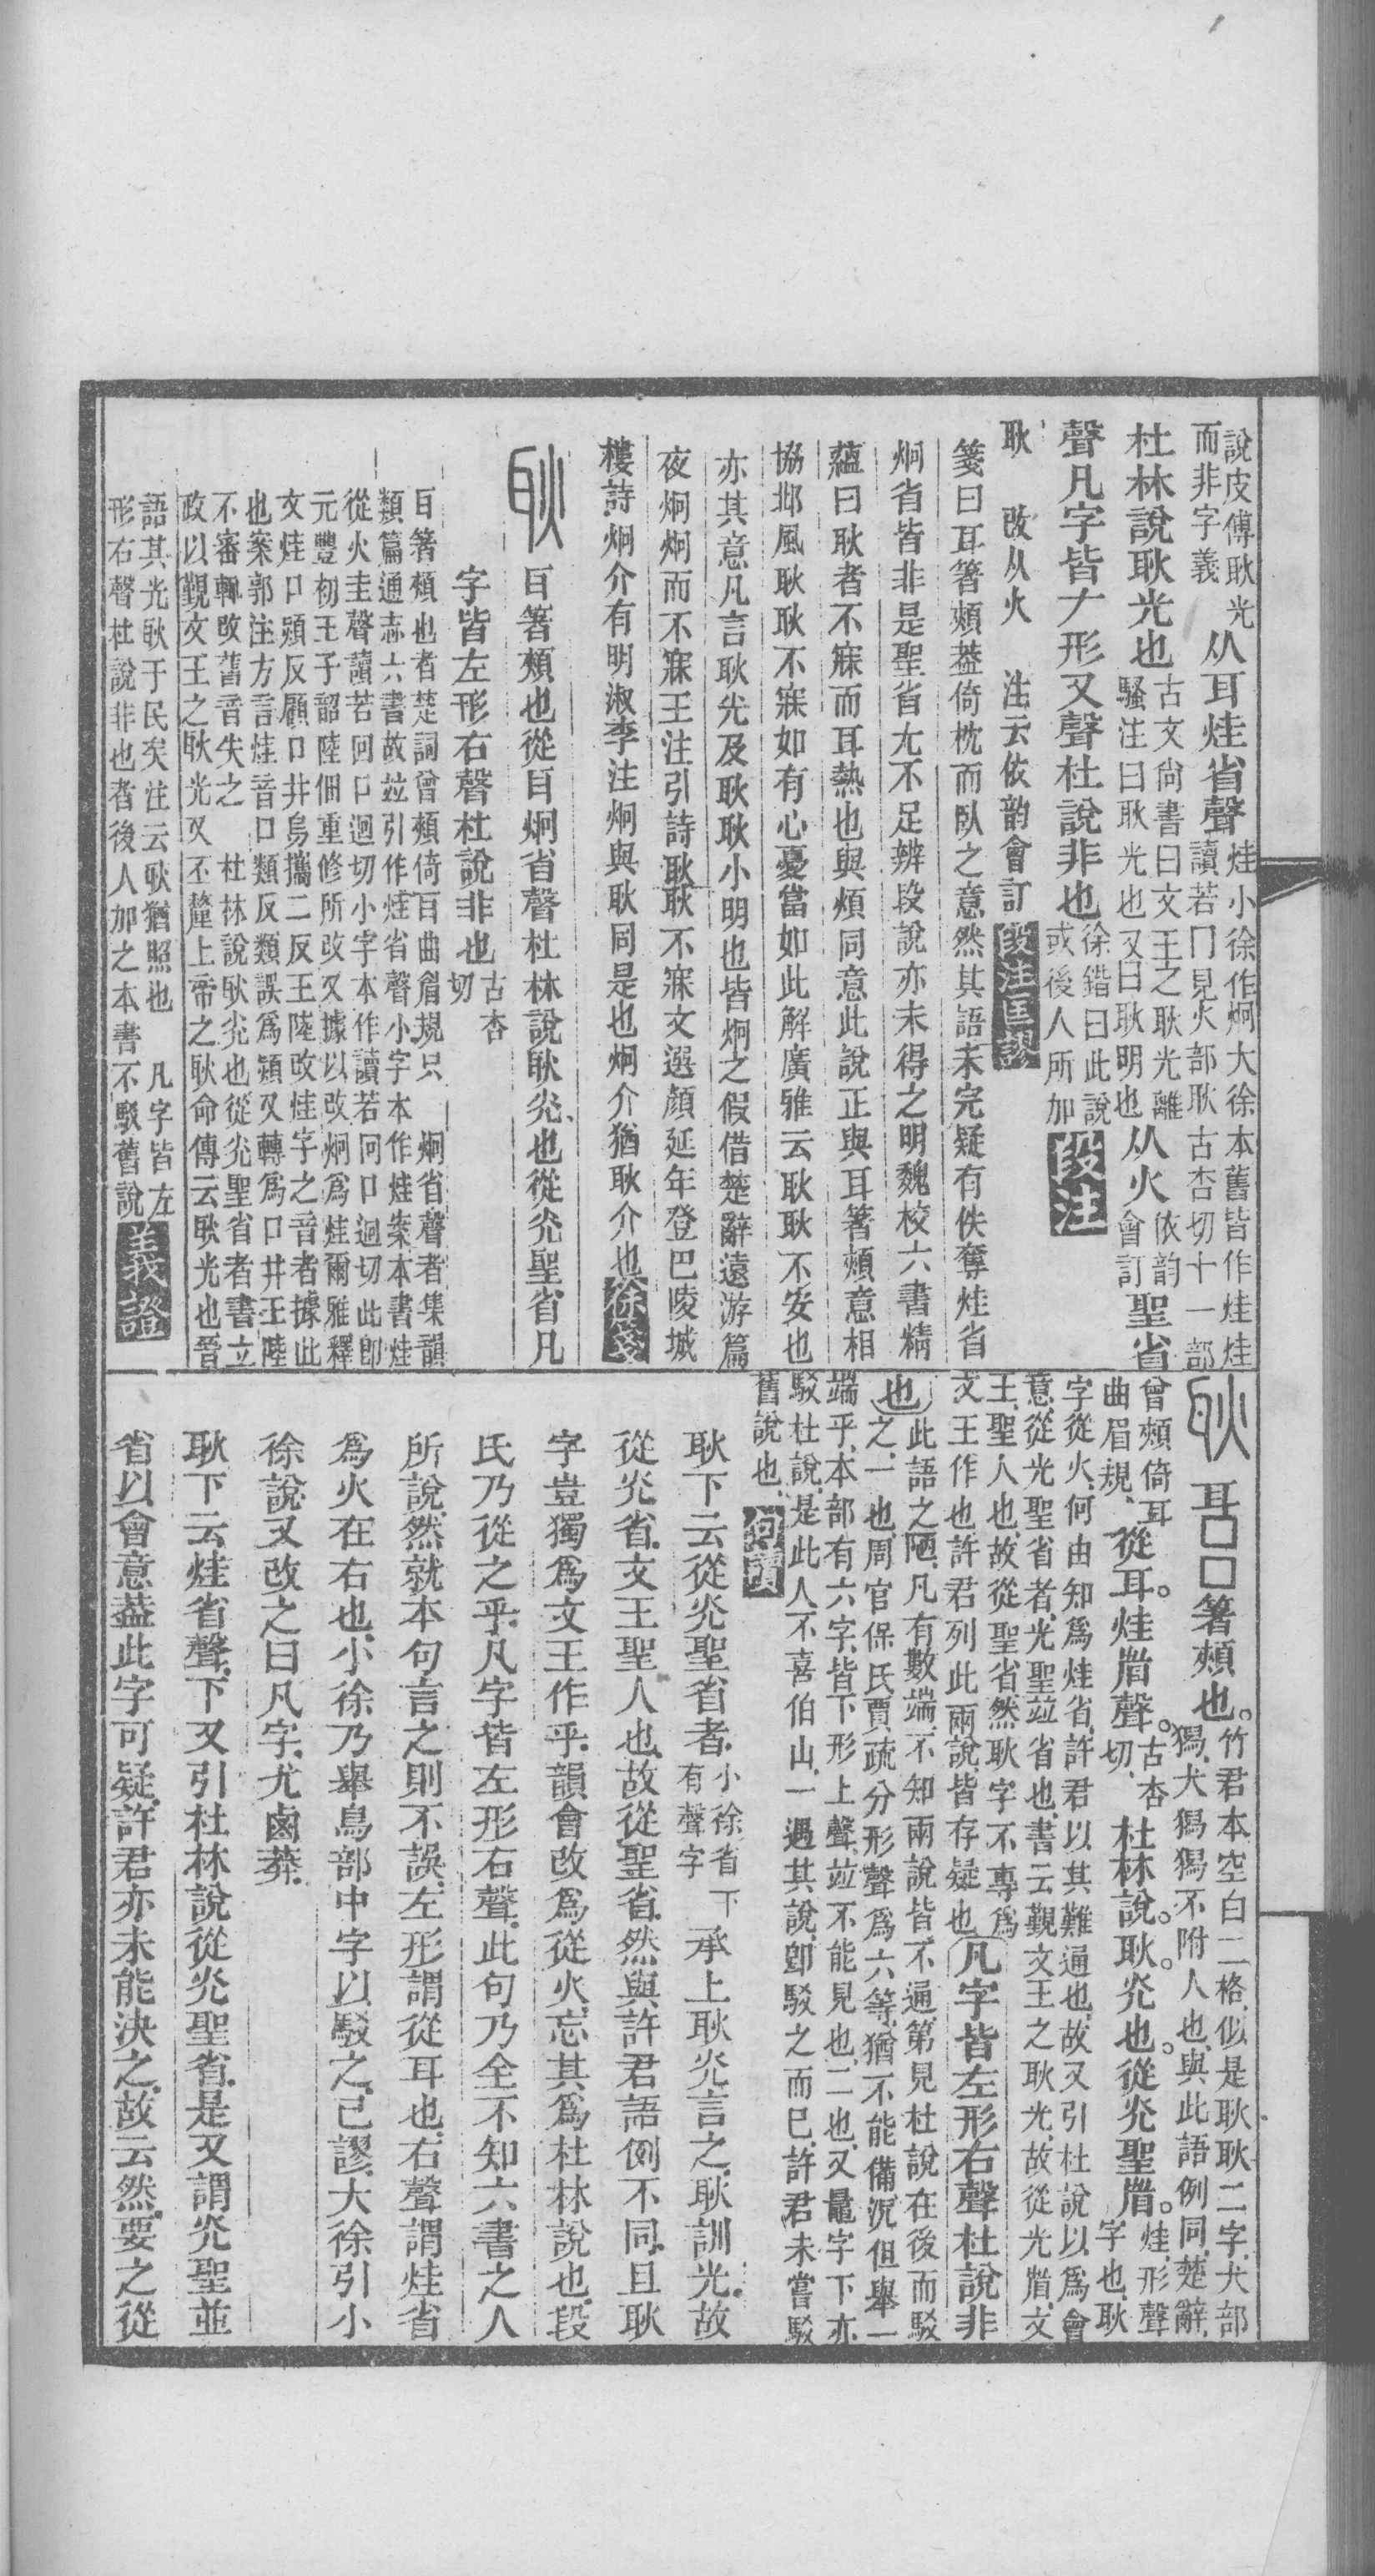 說皮傅耿光
而非字義
从耳烓省聲
烓小徐作炯大徐本舊皆作烓烓
讀若冂見火部耿古杏切十一部
杜林說耿光也
古文尙書曰文王之耿光離
騷注曰耿光也又曰耿明也
从火
依韵
會訂
聖省
聲凡字皆𠂇形又聲杜說非也
徐鍇曰此說
或後人所加
段注
耿 改从火 注云依韵會訂
段注匡謬
箋曰耳箸頰葢倚枕而臥之意然其語未完疑有佚奪烓省
炯省皆非是聖省尢不足辨段說亦未得之明魏校六書精
蘊曰耿者不寐而耳熱也與煩同意此說正與耳箸頰意相
協邶風耿耿不寐如有心憂當如此解廣雅云耿耿不安也
亦其意凡言耿光及耿耿小明也皆炯之假借楚辭遠游篇
夜炯炯而不寐王注引詩耿耿不寐文選顏延年登巴陵城
樓詩炯介有明淑李注炯與耿同是也炯介猶耿介也
徐箋
耿
耳箸頰也從耳炯省聲杜林說耿灮也從灮聖省凡
字皆左形右聲杜說非也
古杏
切
耳箸頰也者楚詞曾頰倚耳曲眉規只 炯省聲者集韻
類篇通志六書故竝引作烓省聲小字本作烓案本書烓
從火圭聲讀若回口迥切小字本作讀若冋口迥切此卽
元豐初王子韶陸佃重修所改又據以改炯爲烓爾雅釋
文烓口熲反顧口井烏攜二反王陸改烓字之音者據此
也案郭注方言烓音口類反類誤爲熲又轉爲口井王陸
不審輒改舊音失之 杜林說耿灮也從灮聖省者書立
政以覲文王之耿光又丕釐上帝之耿命傳云耿光也晉
語其光耿于民矣注云耿猶照也 凡字皆左
形右聲杜說非也者後人加之本書不駁舊說
義證
耿
耳□□箸頰也。
竹君本空白二格、似是耿耿二字、犬部
獡、犬獡獡不附人也、與此語例同、楚辭、
曾頰倚耳
曲眉規、
從耳。烓省聲。
古杏
切、
杜林說。耿灮也。從灮聖省。
烓、形聲
字也、耿
字從火、何由知爲烓省、許君以其難通也、故又引杜說以爲會
意、從光聖省者、光聖竝省也、書云覲文王之耿光、故從光省、文
王、聖人也、故從聖省、然耿字不專爲
文王作也、許君列此兩說、皆存疑也、
凡字皆左形右聲杜說非
也
此語之陋、凡有數端、不知兩說皆不通、第見杜說在後而駁
之、一也、周官保氏賈疏分形聲爲六等、猶不能備、況但舉一
端乎、本部有六字、皆下形上聲、竝不能見也、二也、又鼂字下亦
駁杜說、是此人不喜伯山、一遇其說、卽駁之而已、許君未嘗駁
舊說也、
句讀
耿下云從灮聖省者、
小徐省下
有聲字
承上耿灮言之、耿訓光、故
從灮省、文王聖人也、故從聖省、然與許君語例不同、且耿
字豈獨爲文王作乎、韻會改爲從火、忘其爲杜林說也、段
氏乃從之乎、凡字皆左形右聲、此句乃全不知六書之人
所說、然就本句言之則不誤、左形謂從耳也、右聲謂烓省
爲火在右也、小徐乃舉鳥部中字以駁之、已謬、大徐引小
徐說、又改之曰凡字、尤鹵莽、
耿下云烓省聲、下又引杜林說從灮聖省、是又謂灮聖並
省以會意、葢此字可疑、許君亦未能決之、故云然、要之從